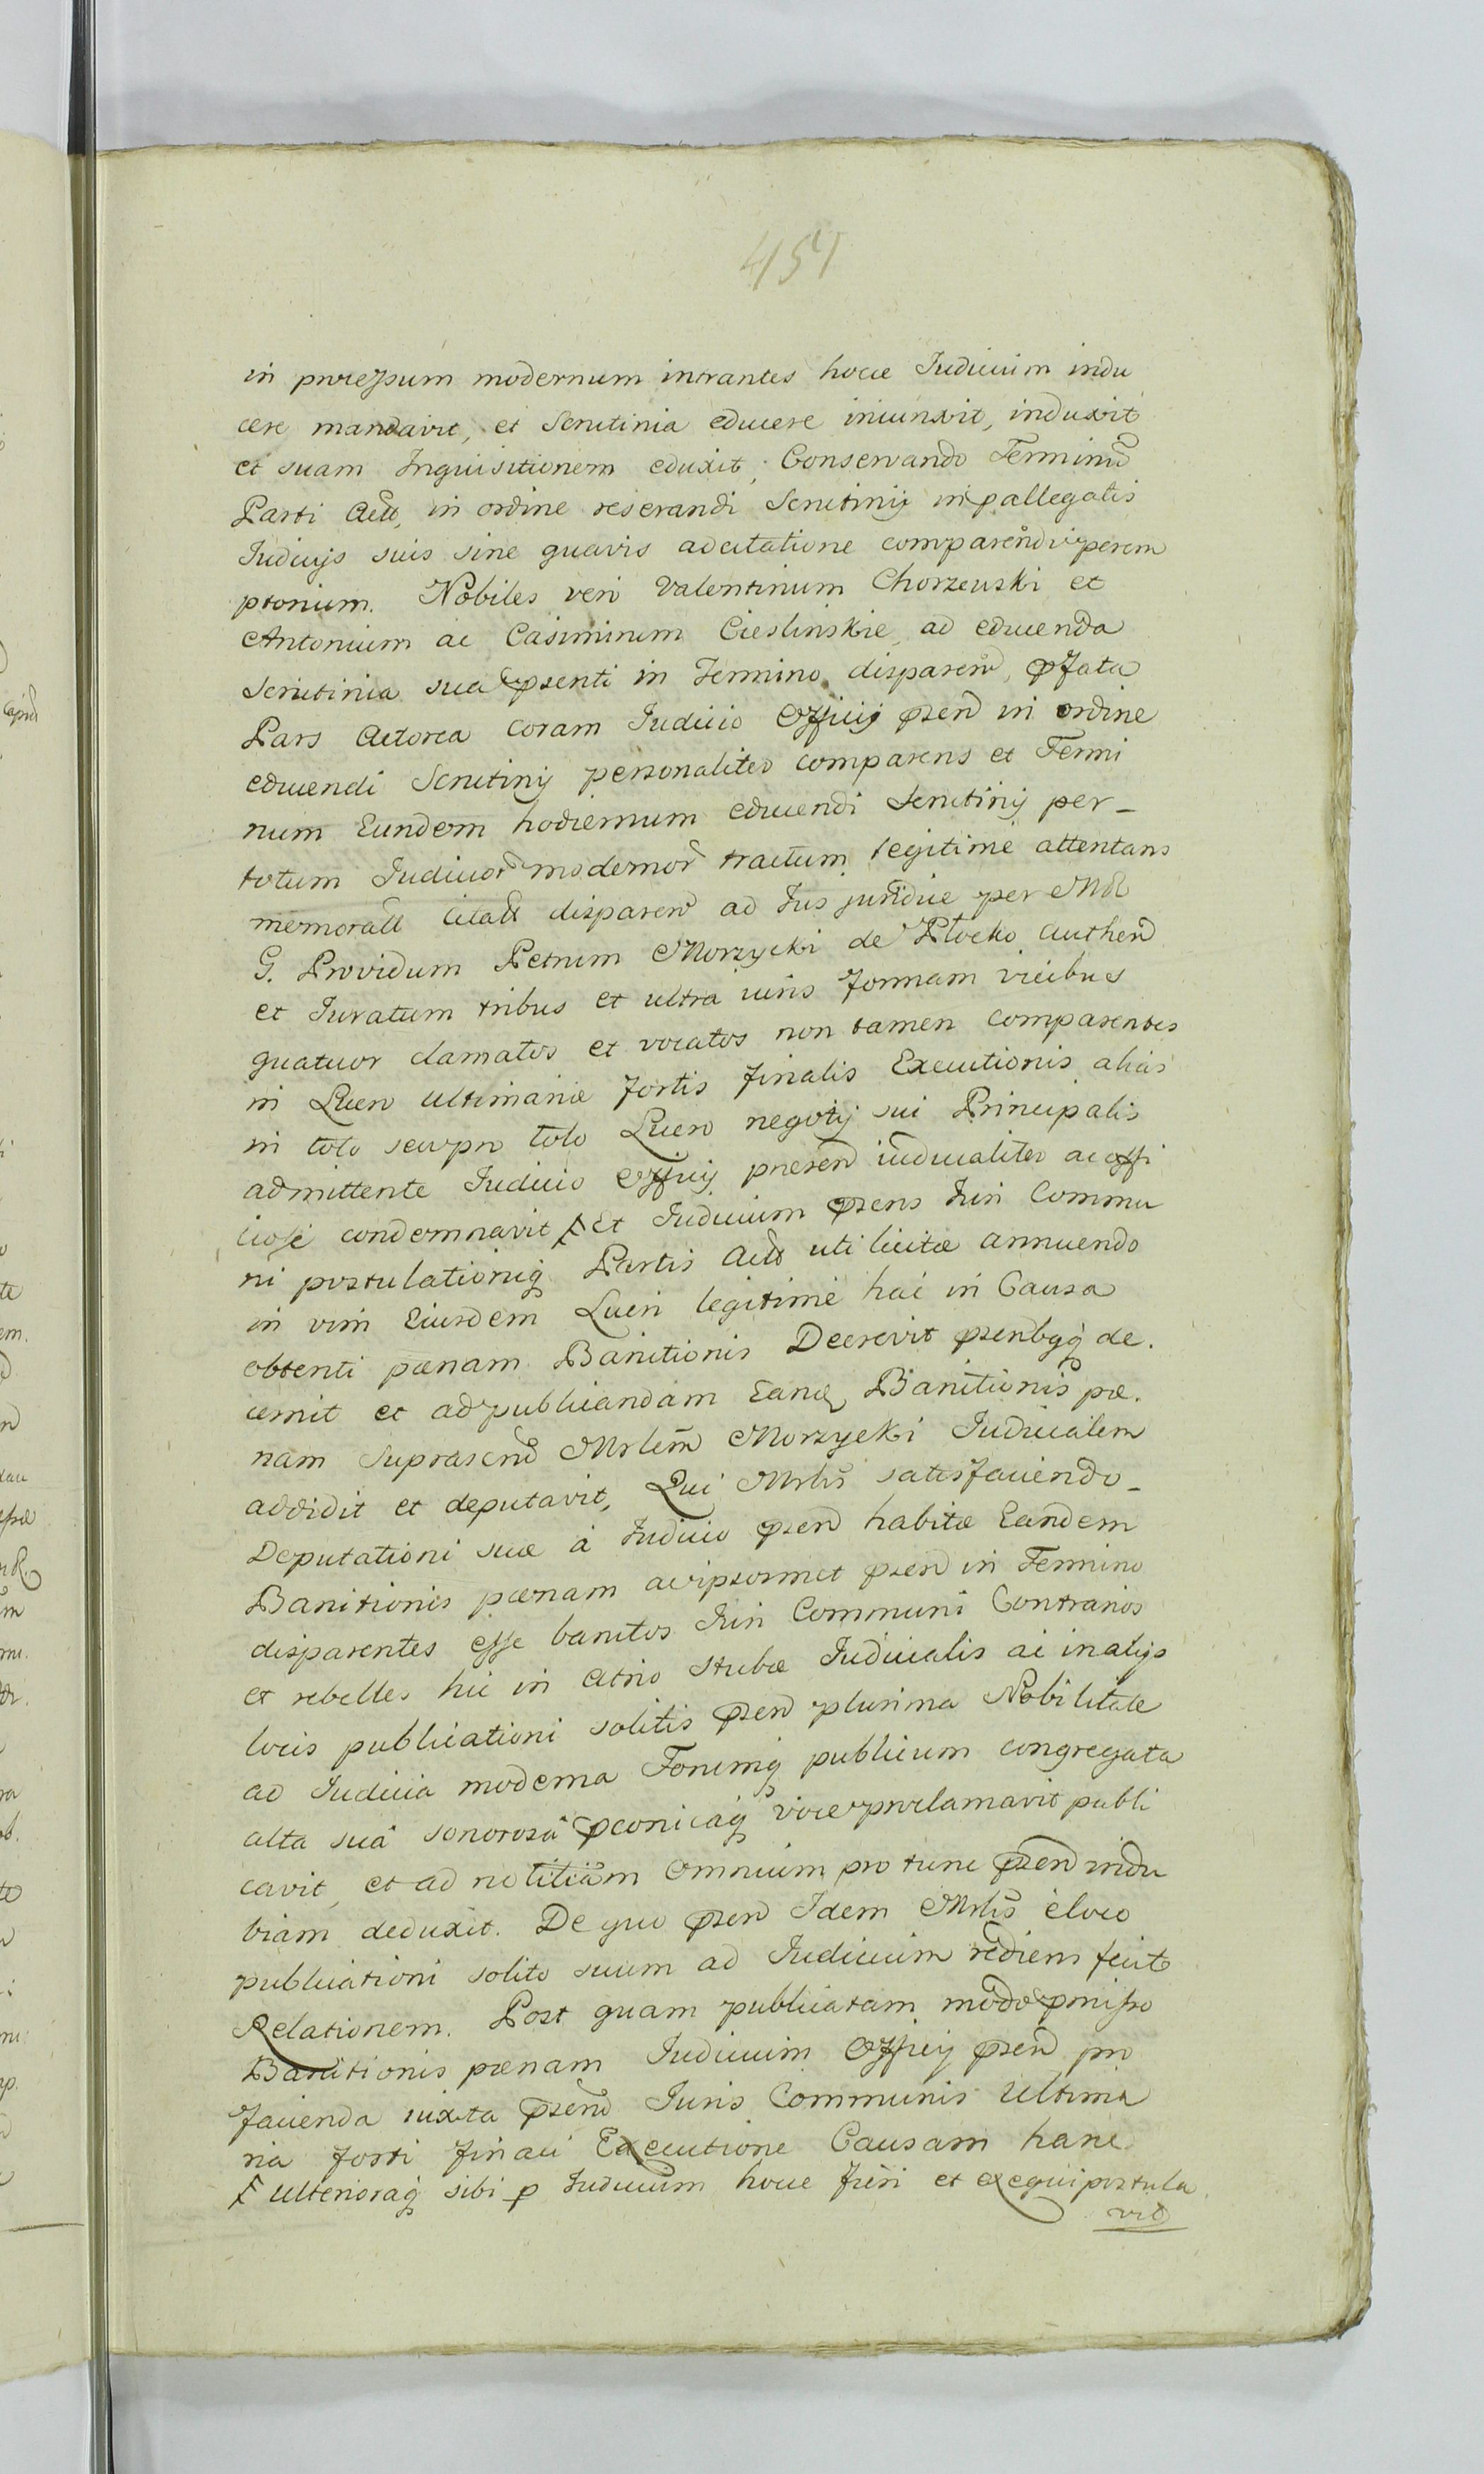 451
in processum modernum intrantes hocce Judicium indu
cere mandavit, et Scrutinia educere iniunxit, induxit
et suam Inquisitionem eduxit, Conservando Terminũ
Parti Actt, in ordine reserandi Scrutinij in pallegatis
Judicijs suis sine quavis adcitatione comparendi perem
ptorium. Nobiles vero Valentinum Chorzewski et
Antonium ac Casimirum Cieslinskie, ad educenda
Scrutinia sua psenti in Termino disparen, pfata
Pars Actorea coram Judicio Officij psen in ordine
educendi Scrutinij personaliter comparens et Termi
num Eundem hodiernum educendi Scrutinij per-
totum Judicior modernor tractum legitime attentans
memoratt Citatt disparen ad Jus juridice per Mtt
G. Providum Petrum Morzycki de Plocko authen
et Juratum tribus et ultra iuris formam vicibus
quatuor clamatos et vocatos non tamen comparentes
in Lucro ultimariæ fortis finalis Executionis alias
in toto seu pro toto Lucro negotij sui Principalis
admittente Judicio Officij presen iudicialiter ac offi
ciose condemnavit Ⱡ Et Judicium psens Juri Commu
ni postulationiq Partis Actt uti licitæ annuendo
in vim Eiusdem Lucri legitimè hac in Causa
obtenti pœnam Banitionis Decrevit psenbqq de.
cernit et ad publicandam Eanđ Banitionis pœ.
nam Suprascrip Mrlem Morzycki Judicialem
addidit et deputavit, Qui Mrlis satisfaciendo-
Deputationi suæ à Judicio psen habitæ Eandem
Banitionis pœnam ac ipsosmet psen in Termino
disparentes esse banitos Juri Communi Contrarios
et rebelles hic in Atrio Stubæ Judicialis ac in alijs
locis publicationi solitis psen plurima Nobilitate
ad Judicia moderna Forumq publicum congregata
alta suâ sonorosâ pconicaq voce proclamavit publi
cavit, et ad notitiam omnium pro tunc psen indu
biam deduxit. De quo psen Idem Mrlis è loco
publicationi solito suum ad Judicium rediens fecit
Relationem. Post quam publicatam modo pmisso
Banitionis pœnam Judicium Officij psen pro
facienda iuxta psen Juris Communis Ultima
ria forti finali Executione Causam hanc
Ⱡ Ulterioraq sibi p Judicium hocce fieri et exequi postula
vit